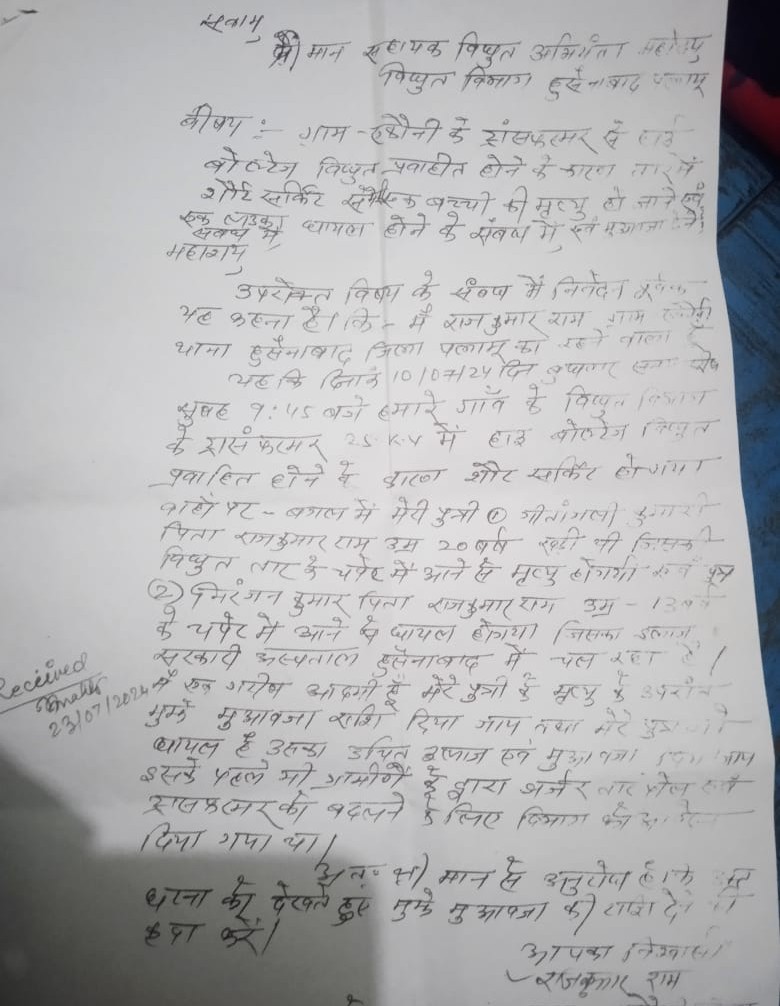 सेवामे
श्री मान सहायक विधुत अभियंता महोदय
विधुत विभाग हुसैनाबाद पलामू
बीषय :- ग्राम - के ट्रांसफरमर से हाई
बोल्टेज विधुत प्रवाहीत होने के कारण तार में
शौर्ट सर्किट एक बच्ची की मृत्यु हो जाने एवं
एक लड़का घायल होने के संबंध में एवं मुआवजा देने
संबंध में,
महाशय,
उपरोक्त विषय के संबंध में निवेदन पूर्वक
यह कहना है। कि - मैं राजकुमार राम ग्राम
थाना हुसैनाबाद जिला पलामू का रहने वाला हूँ
यह कि दिनांक 10/07/24 दिन बुधवार
सुबह 9:45 बजे हमारे गाँव के विधुत विभाग
के ट्रांसफरमर 25 K.V में हाइ बोल्टेज विधुत
प्रवाहित होने के कारण शौट सर्किट हो गया
वाहाँ पर - बगल में मेरी पुत्री ① गीतांजली कुमारी
पिता राजकुमार राम उम्र 20 बर्ष खड़ी थी जिसकी
विधुत तार के चपेट में आने से मृत्यु हो गयी एवं पुत्र
② निरंजन कुमार पिता राजकुमार राम उम्र - 13 बर्ष
के चपेट में आने से घायल हो गया जिसका इलाज
सरकारी अस्पताल हुसैनाबाद में चल रहा है।
मैं एक गरीब आदमी हूँ मेरे पुत्री के मृत्यु के उपरांत
मुझे मुआवजा राशि दिया जाय तथा मेरे पुत्र जो
घायल है उसका उचित इलाज एवं मुआवजा दिया जाय
इसके पहले भी ग्रामीणों के द्वारा जर्जर तार पोल एवं
ट्रांसफरमर को बदलने के लिए विभाग को आवेदन
दिया गया था।
अतः श्री मान से अनुरोध है कि
घटना को देखते हुए मुझे मुआवजा की राशि देने की
कृपा करें।
आपका विश्वासी
राजकुमार राम
Received
23/07/2024